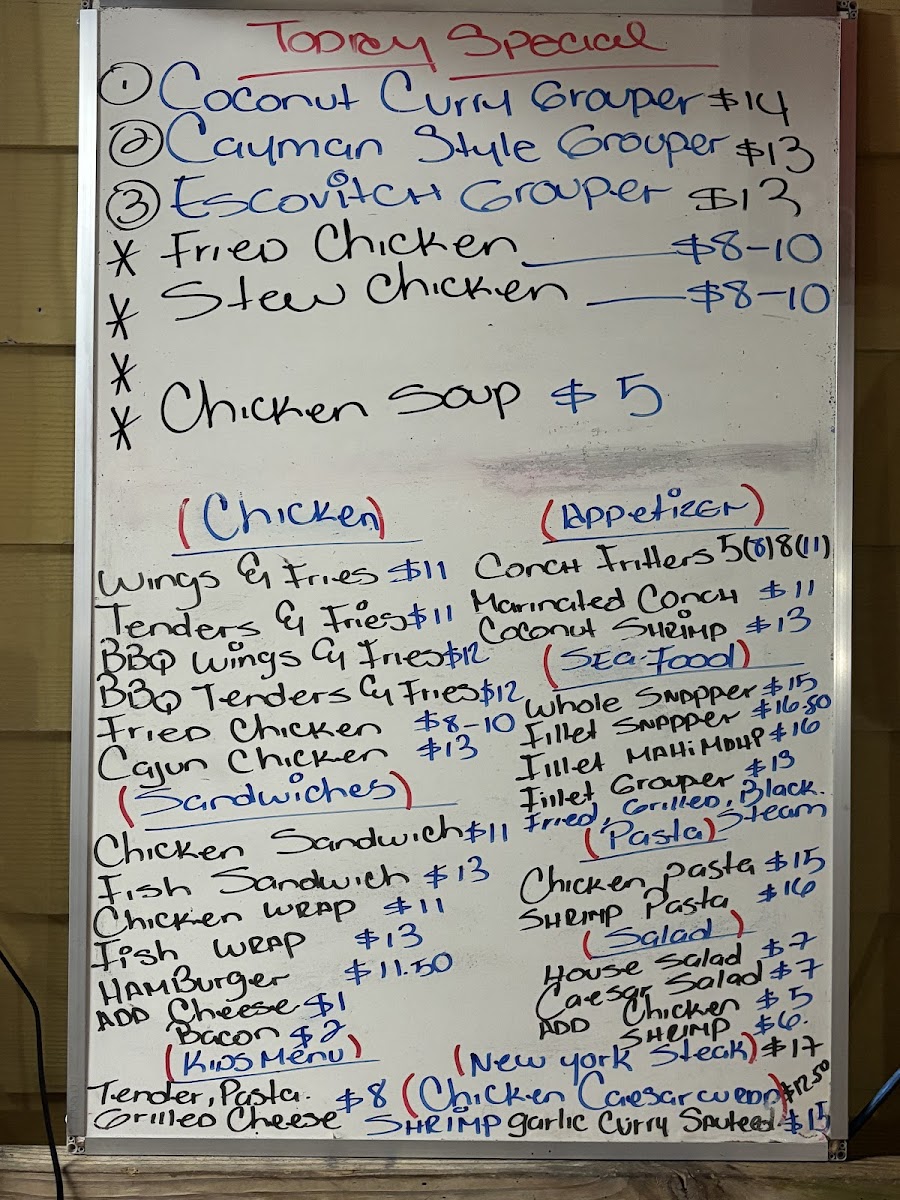 Today Special
1 Coconut Curry Grouper $14
2 Cayman Style Grouper $13
3 Escovitch Grouper $13
* Fried Chicken $8-10
* Stew Chicken $8-10
*
* Chicken Soup $5
(Chicken)
Wings & Fries $11
Tenders & Fries $11
BBQ Wings & Fries $12
BBQ Tenders & Fries $12
Fried Chicken $8-10
Cajun Chicken $13
(Sandwiches)
Chicken Sandwich $11
Fish Sandwich $13
Chicken WRAP $11
Fish WRAP $13
HAMBurger $11.50
ADD Cheese $1
Bacon $2
(Kids Menu)
Tender, Pasta. $8
Grilled Cheese
(Appetizer)
Conch Fritters 5(8)8(11)
Marinated Conch $11
Coconut SHRIMP $13
(Sea-Food)
Whole Snapper $15
Fillet Snappper $16.50
Fillet MAHiMAHP $16
Fillet Grouper $13
Fried, Grilled, Black.
Steam
(Pasta)
Chicken pasta $15
SHRIMP Pasta $16
(Salad)
House Salad $7
Caesar Salad $7
ADD Chicken $5
SHRIMP $6.
(New york Steak) $17
(Chicken Caesar wrap) $12.50
SHRIMP garlic Curry Sauteed $15